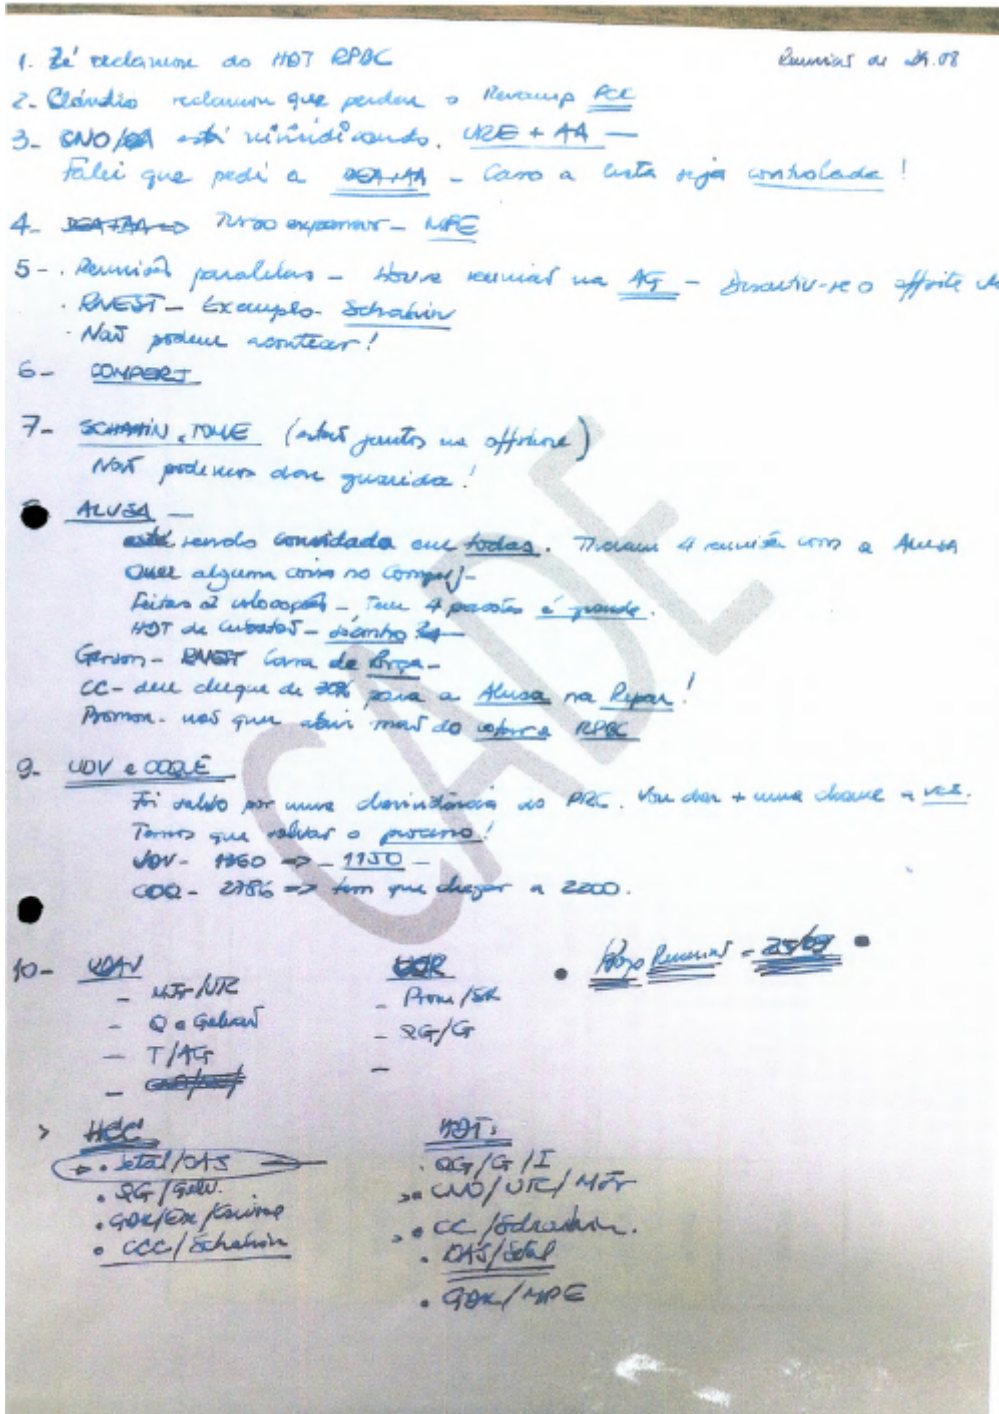 1. Zé reclamou do HDT RPBC
Reunião de 29.08
2- Cláudio reclamou que perdeu o Revamp
3- CNO/ está reivindicando. URE + AA —
Falei que pedi a DEA+AA - Caso a lista seja controlada!
4- DEA+AA => Turbo expansor - MPE
5- . Reunião paralelas - Houve reunião na AG - Discutiu-se o offsite
. RNEST - Exemplo - Schahin
. Não podem acontecer!
6- COMPERJ
7- SCHAHIN e TOME (estão juntos na offshore)
Não podemos dar guarida!
ALUSA —
está sendo convidada em todas. 4 reunião com a Alusa
Quer alguma coisa no Comperj-
Feitas 2 colocações - Tem 4 pacotes é grande.
HDT de Cubatão -
Gerson - RNEST Casa de Força -
CC - deu cheque de 30% para a Alusa na Repar!
Promon - não quer abrir mão do RPBC
9- UDV e COQUE
Foi salvo por uma do PRC. Vou dar + uma chance a vcs.
Temos que salvar o processo!
UDV - 1360 => - 1150 -
COQ - 2786 => tem que chegar a 2200.
10- UDAV
- MJr/UTC
- Q e Galvão
- T/AG
-
UCR
- Prom/SK
- QG/G
-
• Prox Reunião = 25/09 •
> HCC
→ • Setal/OAS
• QG/Galv.
• GDK/
• CCC/Schahin
HDT:
. QG/G/I
. CNO/UTC/MJr
. CC/Schahin.
. OAS/Setal
• GDK/MPE
CADE